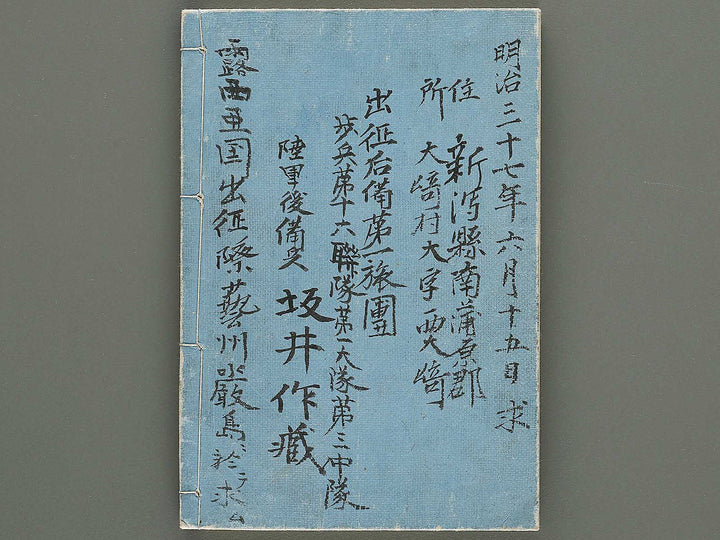 明治三十七年六月十五日 求
住所
新潟縣南蒲原郡
大﨑村大字西大﨑
出征后備第一旅團
歩兵第十六聯隊第一大隊第三中隊
陸軍後備兵 坂井作藏
露西亜国出征際藝州嚴島ニ於テ求ム